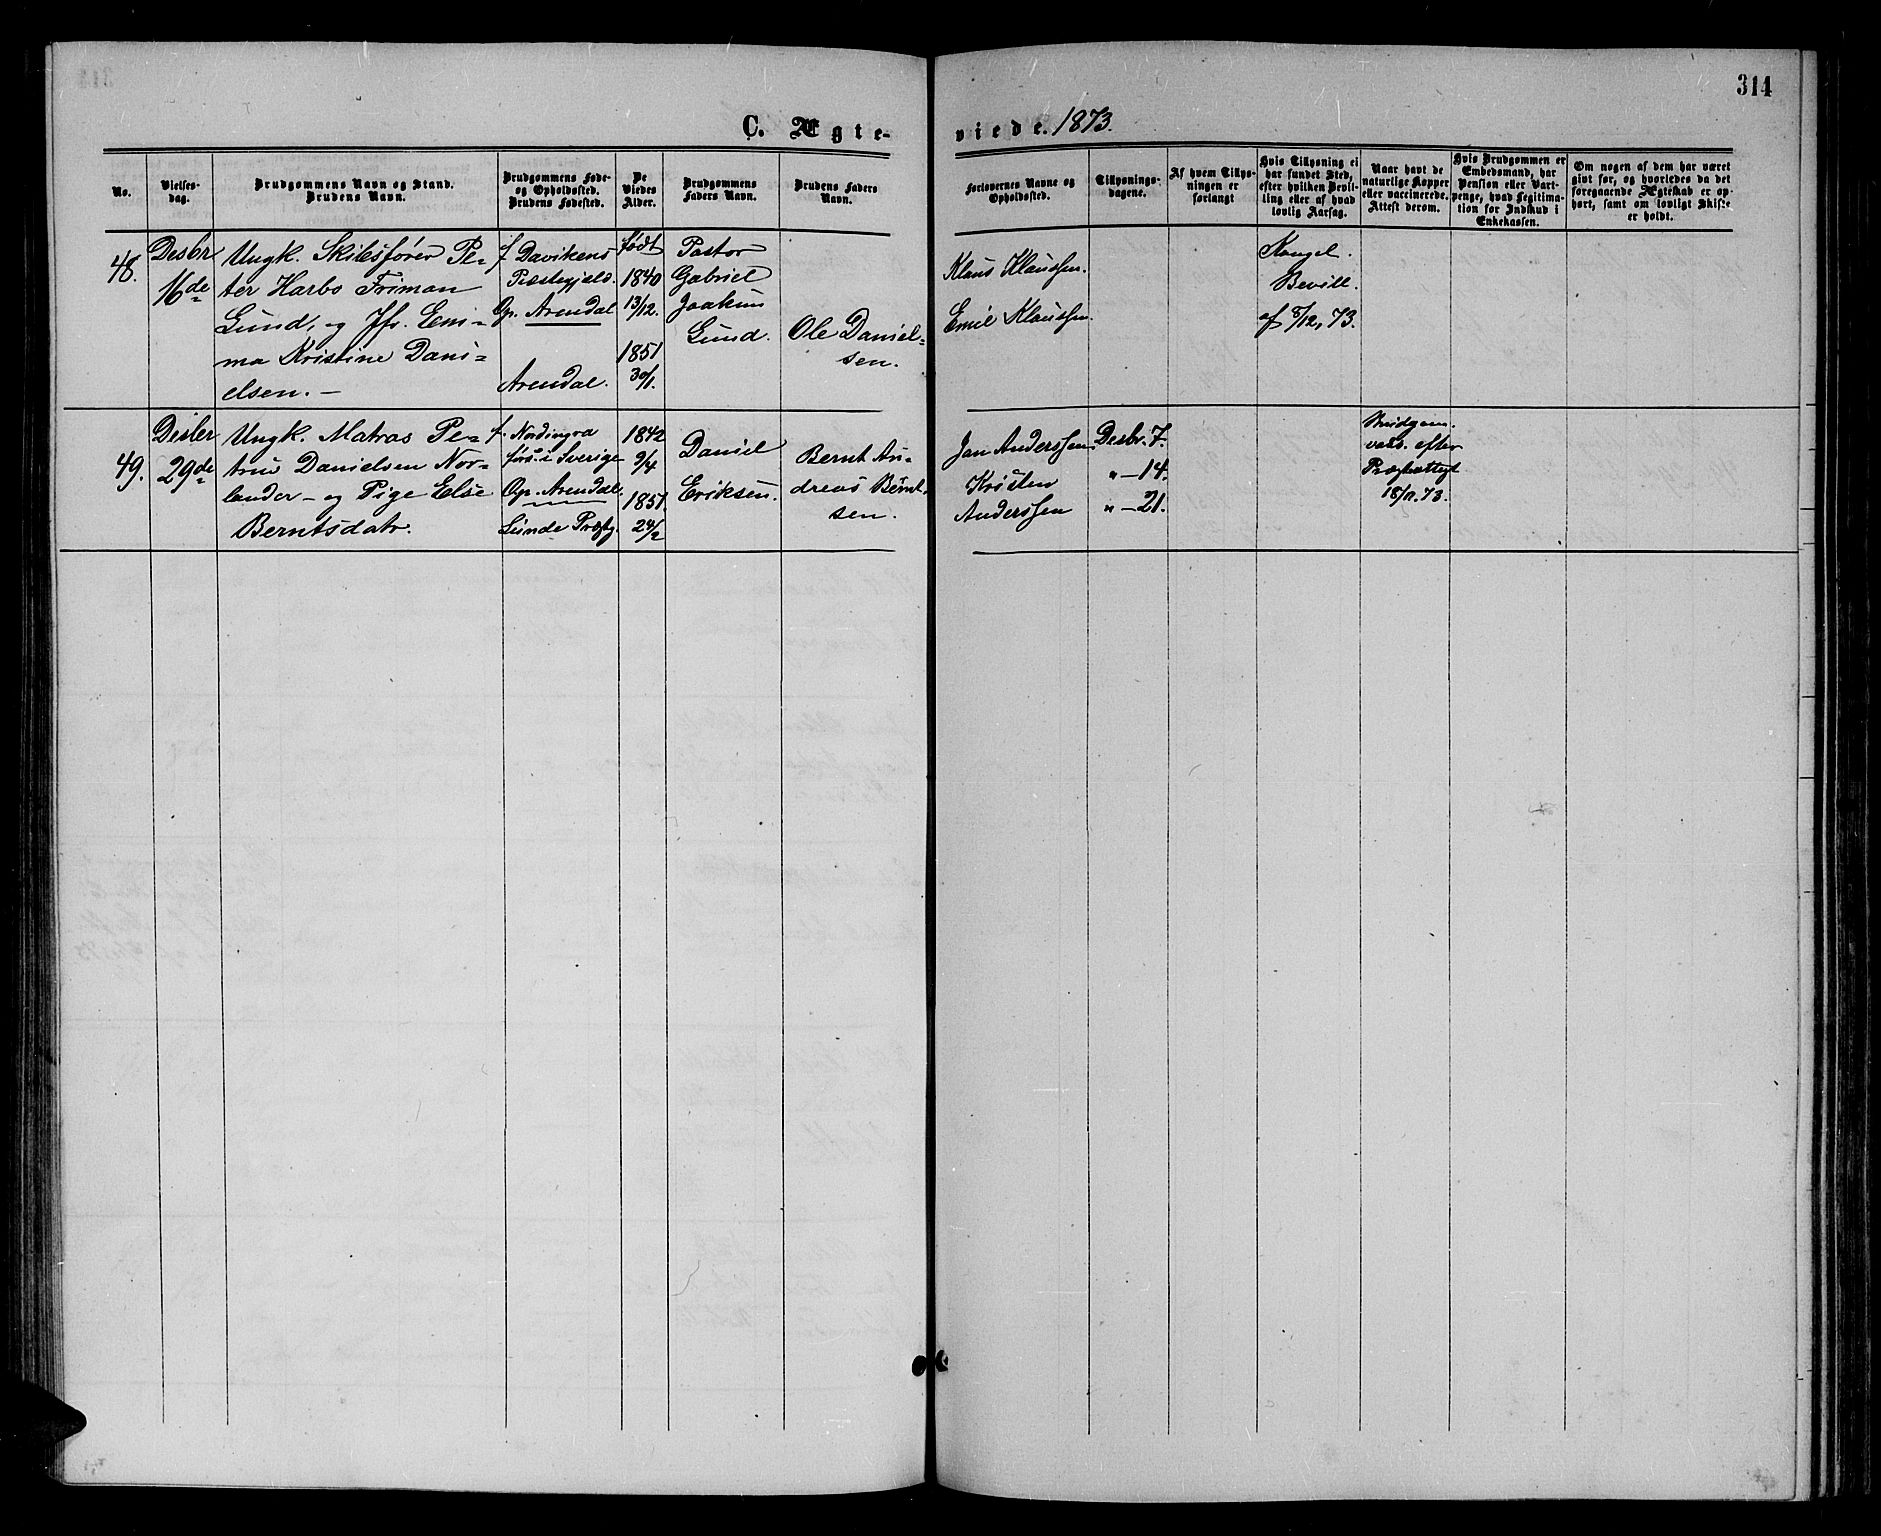 314
C. Ægte-
viede. 1873.
No.
Vielses-
dag.
Brudgommens Navn og Stand.
Brudens Navn.
Brudgommens Føde-
og Opholdssted.
Brudens Fødested.
De
Viedes
Alder.
Brudgommens
Faders Navn.
Brudens Faders
Navn.
Forlovernes Navne og
Opholdssted.
Tillysnings-
dagene.
Af hvem Tillys-
ningen er
forlangt
Hvis Tillysning ei
har fundet Sted,
efter hvilken Bevil-
ling eller af hvad
lovlig Aarsag.
Naar havt de
naturlige Kopper
eller vaccinerede.
Attest derom.
Hvis Brudgommen er
Embedsmand, har
Pension eller Vart-
penge, hvad Legitima-
tion for Indskud i
Enkekassen.
Om nogen af dem har været
givt før, og hvorledes da det
foregaaende Ægteskab er op-
hørt, samt om lovligt Skifte
er holdt.
48.
Desbr
16de
Ungk. Skibsfører Pe-
ter Harbo Friman
Lund, og Jfr. Em-
ma Kristine Dani-
elsen. -
f. Davikens
Præstegjeld.
Op. Arendal
Arendal.
født
1840
13/12.
1851
30/1.
Pastor
Gabriel
Joakim
Lund.
Ole Daniel-
sen.
Klaus Klaussen.
Emil Klaussen.
Kongel.
Bevill.
af 8/12, 73.
49.
Desbr
29de
Ungk. Matros Pe-
trus Danielsen Nor-
lander - og Pige Else
Berntsdatr.
f. Nordingra
i Sverige
Op. Arendal.
Lunde Præstg.
1842
9/4
1851.
24/2
Daniel
Eriksen.
Bernt An-
dreas Bernt-
sen.
Jan Anderssen
Kristen
Anderssen
Desbr. 7.
" - 14.
" - 21.
Brudgom.
vacc. efter
Præsteattest
18/11. 73.